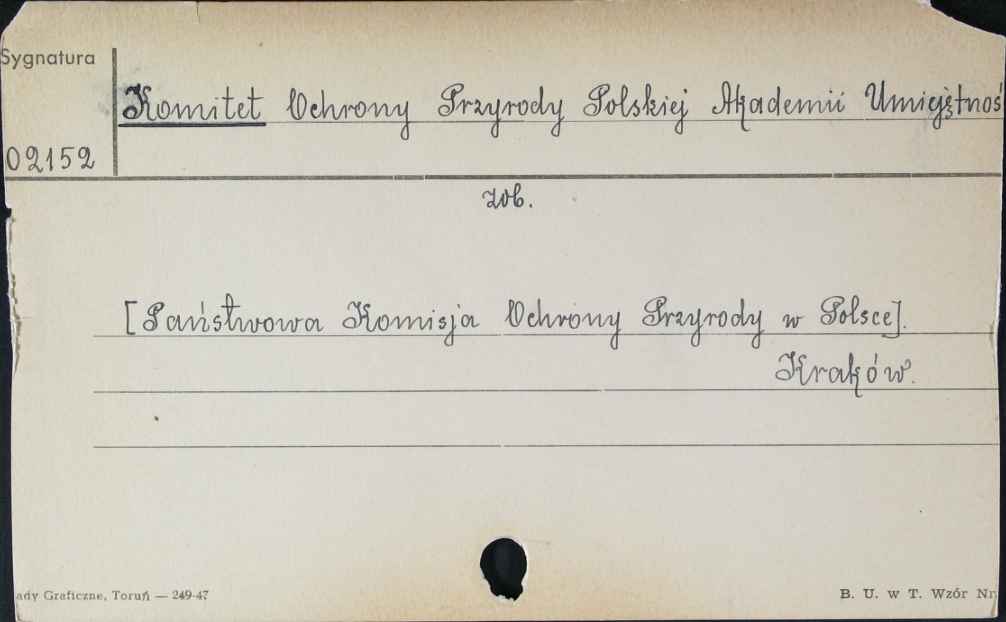 Sygnatura
Komitet Ochrony Przyrody Polskiej Akademii Umiejętnoś
02152
zob.
[Państwowa Komisja Ochrony Przyrody w Polsce].
Kraków.
ady Graficzne, Toruń — 249-47
B. U. w T. Wzór Nr